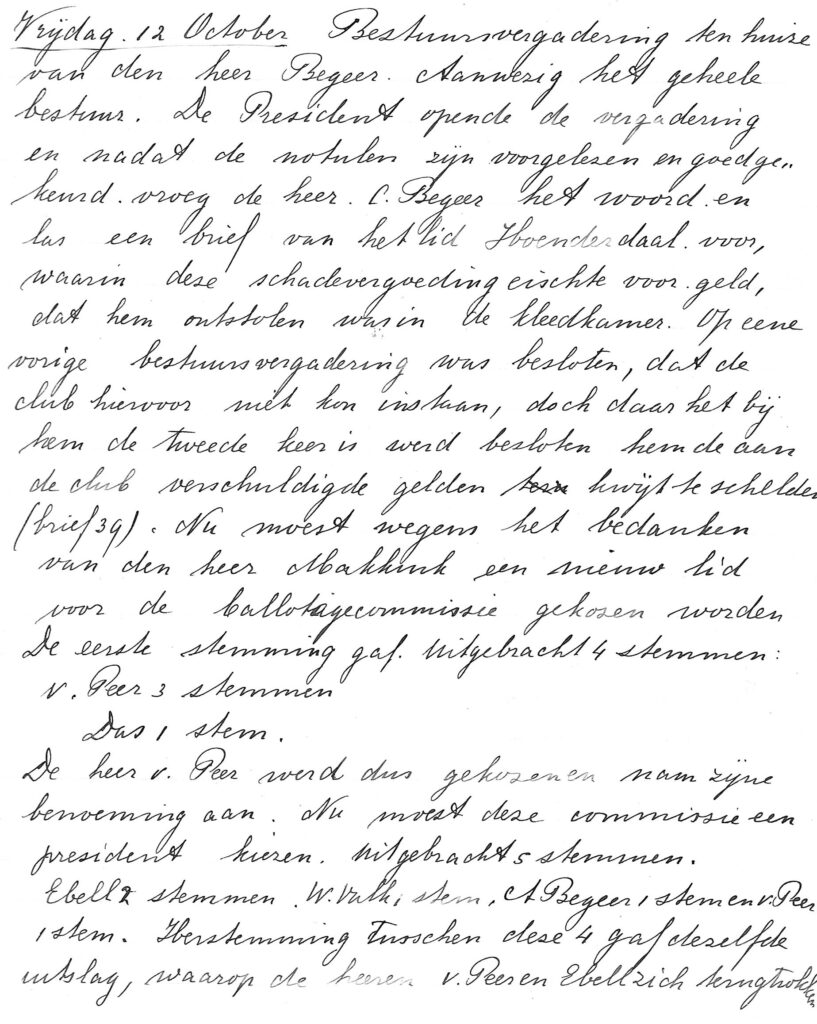 Vrijdag. 12 October Bestuursvergadering ten huize
van den heer Begeer. Aanwezig het geheele
bestuur. De President opende de vergadering
en nadat de notulen zijn voorgelezen en goedge„
keurd. vroeg de heer. C. Begeer het woord en
las een brief van het lid Hoenderdaal voor,
waarin deze schadevergoeding eischte voor geld,
dat hem ontstolen was in de kleedkamer. Op eene
vorige bestuursvergadering was besloten, dat de
club hiervoor niet kon instaan, doch daar het bij
hem de tweede keer is werd besloten hem de aan
de club verschuldigde gelden kwijt te schelden
(brief 39). Nu moest wegens het bedanken
van den heer Makkink een nieuw lid
voor de ballotagecommissie gekozen worden
De eerste stemming gaf. Uitgebracht 4 stemmen:
v. Peer 3 stemmen
Das 1 stem.
De heer v. Peer werd dus gekozen en nam zijne
benoeming aan. Nu moest deze commissie een
president kiezen. Uitgebracht 5 stemmen.
Ebell 2 stemmen. W. Valk 1 stem, A Begeer 1 stem en v. Peer
1 stem. Herstemming tusschen deze 4 gaf dezelfde
uitslag, waarop de heeren v. Peer en Ebell zich terugtrokken